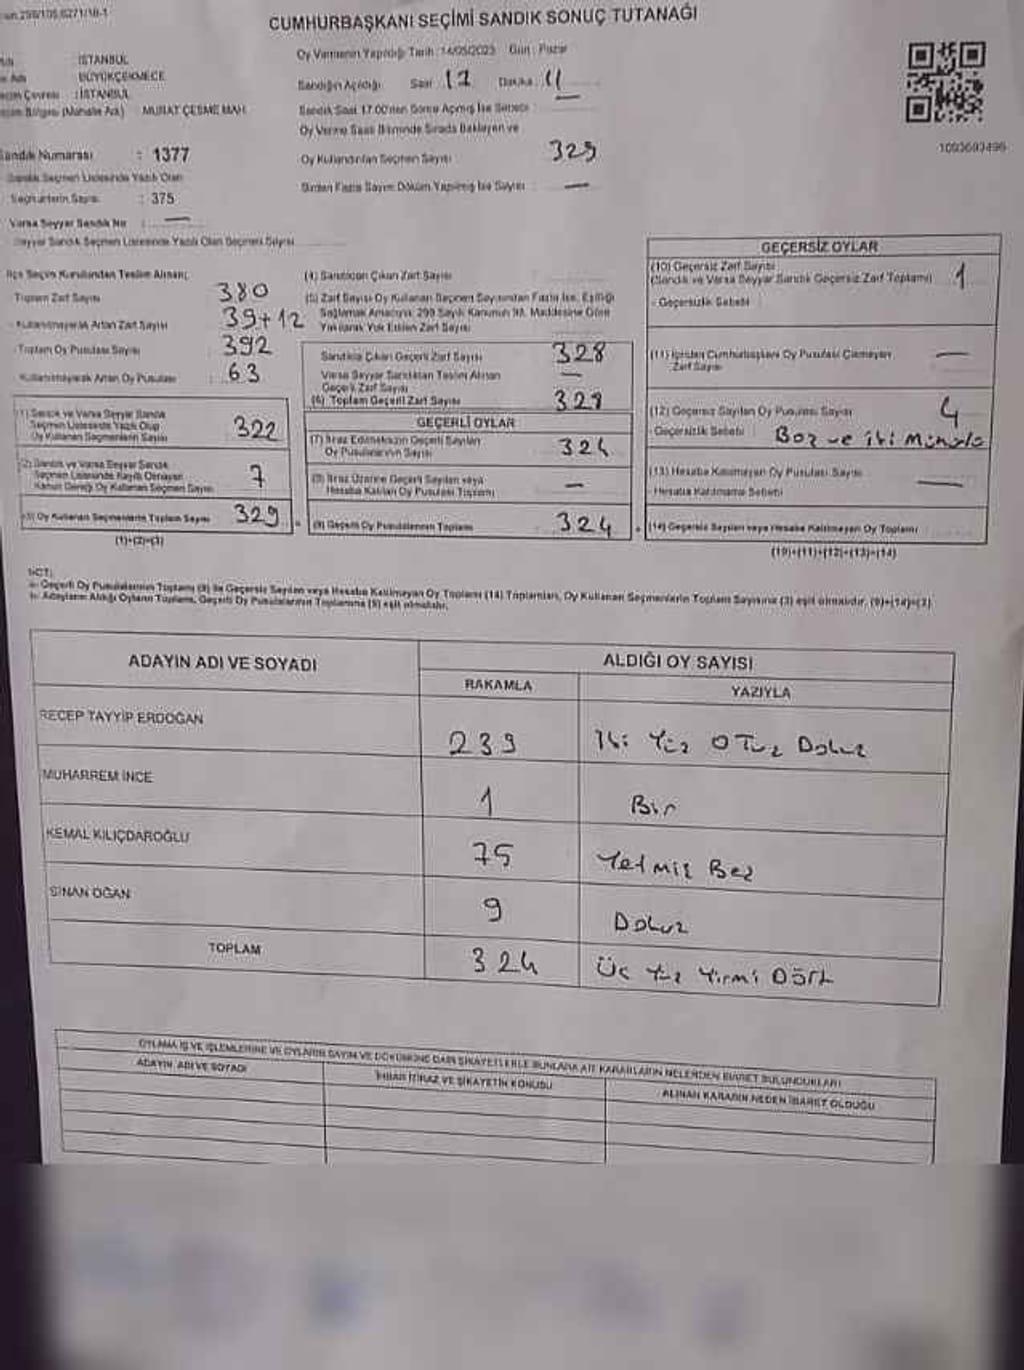 CUMHURBAŞKANI SEÇİMİ SANDIK SONUÇ TUTANAĞI
İSTANBUL
BÜYÜKÇEKMECE
: İSTANBUL
MURAT ÇEŞME MAH.
Sandık Numarası : 1377
Sandık Seçmen Listesinde Yazılı Olan
Seçmenlerin Sayısı : 375
Varsa Seyyar Sandık No : —
Seyyar Sandık Seçmen Listesinde Yazılı Olan Seçmen Sayısı
Oy Vermenin Yapıldığı Tarih : 14/05/2023 Gün : Pazar
Sandığın Açıldığı Saat 17 Dakika 11
Sandık Saat 17.00'den Sonra Açılmış İse Sebebi : —
Oy Verme Saati Bitiminde Sırada Bekleyen ve
Oy Kullandırılan Seçmen Sayısı 329
Birden Fazla Sayım Döküm Yapılmış İse Sayısı : —
1093693496
İlçe Seçim Kurulundan Teslim Alınan;
Toplam Zarf Sayısı 380
Kullanılmayarak Artan Zarf Sayısı 39+12
Toplam Oy Pusulası Sayısı 392
Kullanılmayarak Artan Oy Pusulası : 63
(1) Sandık ve Varsa Seyyar Sandık
Seçmen Listesinde Yazılı Olup
Oy Kullanan Seçmenlerin Sayısı 322
(2) Sandık ve Varsa Seyyar Sandık
Seçmen Listesinde Kayıtlı Olmayan
Kanun Gereği Oy Kullanan Seçmen Sayısı 7
(3) Oy Kullanan Seçmenlerin Toplam Sayısı 329
(1)+(2)=(3)
(4) Sandıktan Çıkan Zarf Sayısı
(5) Zarf Sayısı Oy Kullanan Seçmen Sayısından Fazla İse, Eşitliği
Sağlamak Amacıyla; 298 Sayılı Kanunun 98. Maddesine Göre
Yakılarak Yok Edilen Zarf Sayısı
Sandıkta Çıkan Geçerli Zarf Sayısı 328
Varsa Seyyar Sandıktan Teslim Alınan
Geçerli Zarf Sayısı —
(6) Toplam Geçerli Zarf Sayısı 328
GEÇERLİ OYLAR
(7) İtiraz Edilmeksizin Geçerli Sayılan
Oy Pusulalarının Sayısı 324
(8) İtiraz Üzerine Geçerli Sayılan veya
Hesaba Katılan Oy Pusulası Toplamı —
(9) Geçerli Oy Pusulalarının Toplamı 324
GEÇERSİZ OYLAR
(10) Geçersiz Zarf Sayısı
(Sandık ve Varsa Seyyar Sandık Geçersiz Zarf Toplamı) 1
- Geçersizlik Sebebi
(11) İçinden Cumhurbaşkanı Oy Pusulası Çıkmayan
Zarf Sayısı —
(12) Geçersiz Sayılan Oy Pusulası Sayısı 4
- Geçersizlik Sebebi : Boz ve iki
(13) Hesaba Katılmayan Oy Pusulası Sayısı —
- Hesaba Katılmama Sebebi
(14) Geçersiz Sayılan veya Hesaba Katılmayan Oy Toplamı
(10)+(11)+(12)+(13)=(14)
NOT:
a- Geçerli Oy Pusulalarının Toplamı (9) ile Geçersiz Sayılan veya Hesaba Katılmayan Oy Toplamı (14) Toplamları, Oy Kullanan Seçmenlerin Toplam Sayısına (3) eşit olmalıdır. (9)+(14)=(3)
b- Adayların Aldığı Oyların Toplamı, Geçerli Oy Pusulalarının Toplamına (9) eşit olmalıdır.
ADAYIN ADI VE SOYADI ALDIĞI OY SAYISI
RAKAMLA YAZIYLA
RECEP TAYYİP ERDOĞAN 239 İki Yüz OTuz Dokuz
MUHARREM İNCE 1 Bir
KEMAL KILIÇDAROĞLU 75 Yetmiş Beş
SİNAN OĞAN 9 Dokuz
TOPLAM 324 Üç Yüz Yirmi Dört
OYLAMA İŞ VE İŞLEMLERİNE VE OYLARIN SAYIM VE DÖKÜMÜNE DAİR ŞİKAYETLERLE BUNLARA AİT KARARLARIN NELERDEN İBARET BULUNDUKLARI
ADAYIN ADI VE SOYADI İHBAR İTİRAZ VE ŞİKAYETİN KONUSU ALINAN KARARIN NEDEN İBARET OLDUĞU